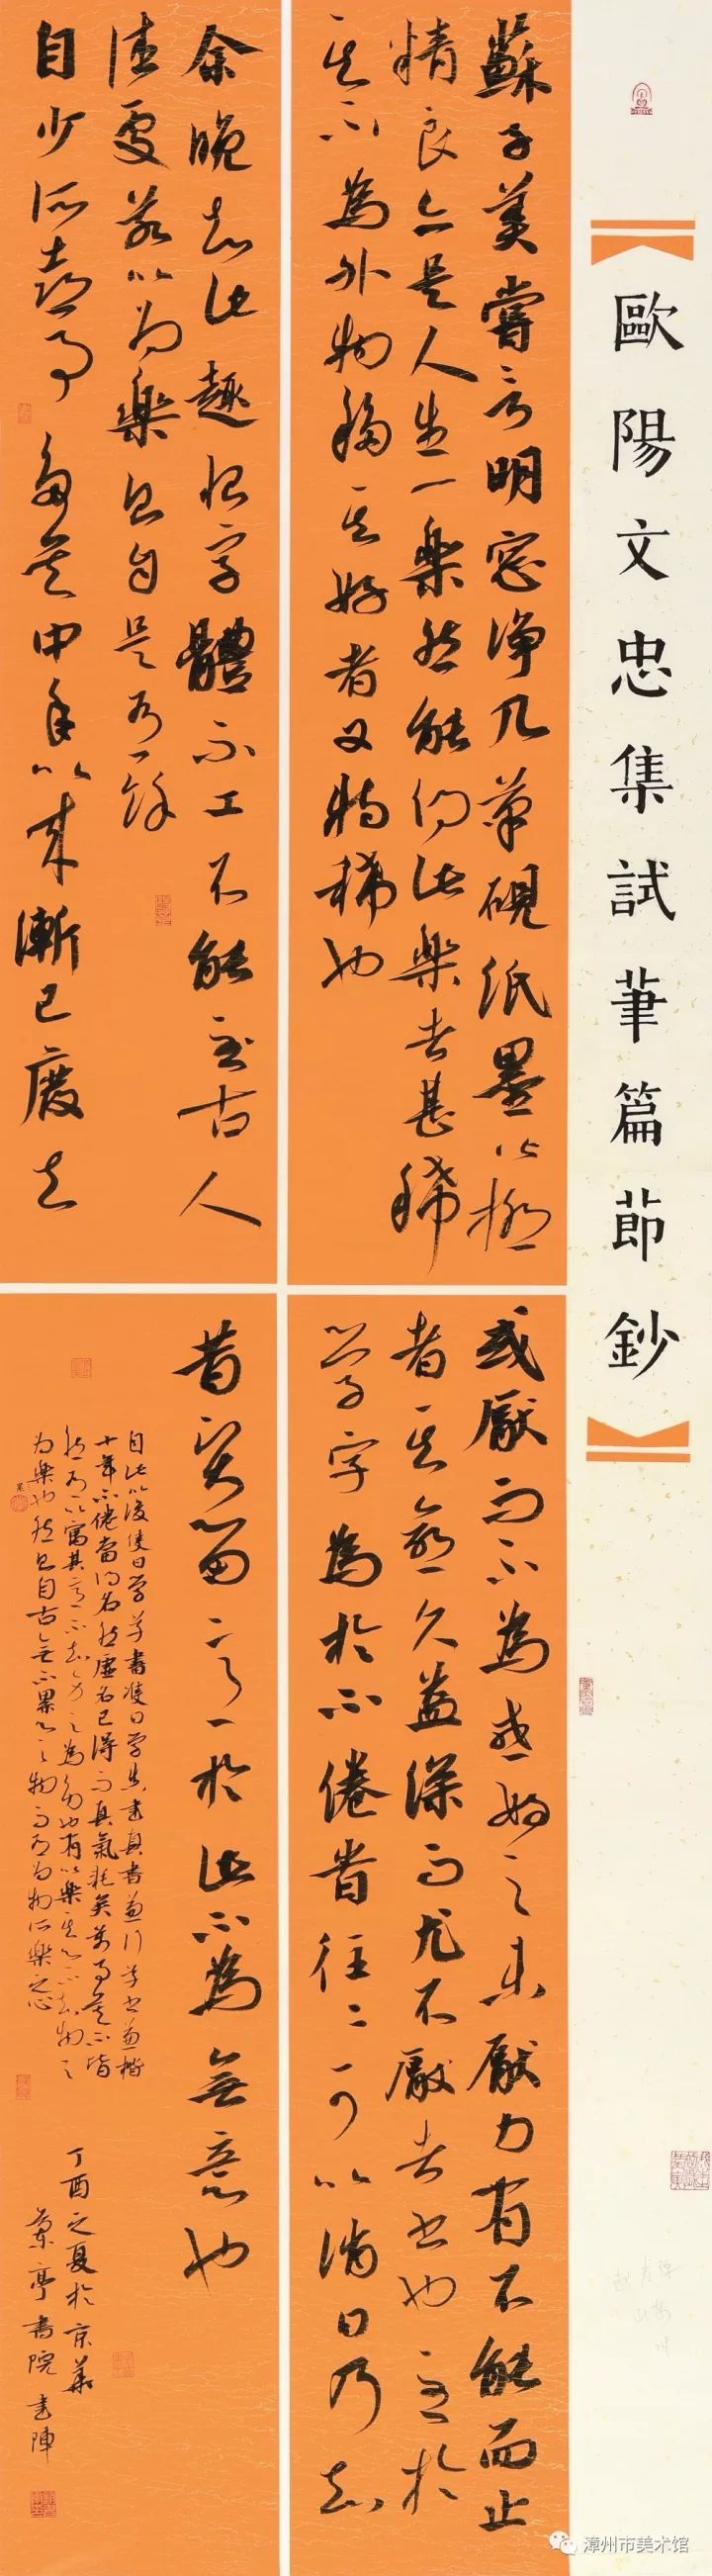 歐陽文忠集試筆篇節鈔
蘇子美嘗言明窓净几筆硯紙墨皆極
精良亦是人生一樂然能得此樂者甚稀
其不為外物移其好者又特稀也
余晚知此趣恨字體不工不能至古人
佳處若以為樂則自是有餘
自少所喜事多矣中年以來漸已廢去
或厭而不為或好之未厭力有不能而止
者其愈久益深而尤不厭者書也至於
學字為於不倦時往往可以消日乃知
昔賢留意於此不為無意也
自此以後隻日學草書雙日學真書真書兼行草書兼楷
十年不倦當得名然虛名已得而真氣耗矣萬事莫不皆
然有以寓其意不知身之為勞也有以樂其心不知物之
為累也然則自古無不累心之物而有為物所樂之心
丁酉之夏於京華
蘭亭書院 陣
漳州市美术馆